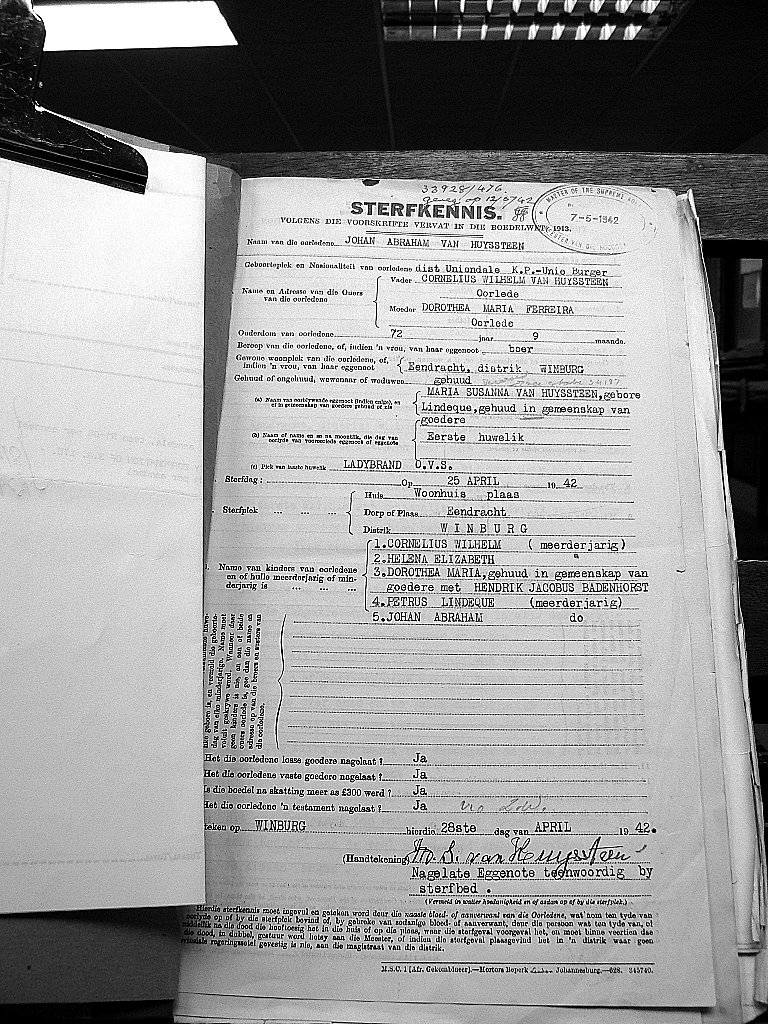 33928/476.
STERFKENNIS.
MASTER OF THE SUPREME
7-5-1942
VOLGENS DIE VOORSKRIFTE VERVAT IN DIE BOEDELWET, 1913.
Naam van die oorledene JOHAN ABRAHAM VAN HUYSSTEEN
Geboorteplek en Nasionaliteit van oorledene dist Uniondale K.P.-Unie Burger
Vader CORNELIUS WILHELM VAN HUYSSTEEN
Oorlede
Name en Adresse van die Ouers van die oorledene
Moeder DOROTHEA MARIA FERREIRA
Oorlede
Ouderdom van oorledene 72 jaar 9 maande.
Beroep van die oorledene, of, indien 'n vrou, van haar eggenoot boer
Gewone woonplek van die oorledene, of, indien 'n vrou, van haar eggenoot Eendracht, distrik WINBURG
Gehuud of ongehuud, wewenaar of weduwee gehuud
(a) Naam van oorblywende eggenoot (indien enige), en of in gemeenskap van goedere gehuud of nie
MARIA SUSANNA VAN HUYSSTEEN, gebore
Lindeque, gehuud in gemeenskap van
goedere
(b) Naam of name en so na moontlik, die dag van oorlyde van vooroorlede eggenoot of eggenote
Eerste huwelik
(c) Plek van laaste huwelik LADYBRAND O.V.S.
Sterfdag : Op 25 APRIL 19 42
Huis Woonhuis plaas
Sterfplek ... ... ... Dorp of Plaas Eendracht
Distrik WINBURG
1. CORNELIUS WILHELM ( meerderjarig )
2. HELENA ELIZABETH "
Name van kinders van oorledene en of hulle meerderjarig of minderjarig is ... ... ...
3. DOROTHEA MARIA, gehuud in gemeenskap van
goedere met HENDRIK JACOBUS BADENHORST
4. PETRUS LINDEQUE (meerderjarig)
5. JOHAN ABRAHAM do
Het die oorledene losse goedere nagelaat ? Ja
Het die oorledene vaste goedere nagelaat ? Ja
Is die boedel na skatting meer as £300 werd ? Ja
Het die oorledene 'n testament nagelaat ? Ja
teken op WINBURG hierdie 28ste dag van APRIL 19 42.
(Handtekening) M. S. van Huyssteen
Nagelate Eggenote teenwoordig by
sterfbed .
(Vermeld in watter hoedanigheid en of aldan op of by die sterfplek.)
Hierdie sterfkennis moet ingevul en geteken word deur die naaste bloed- of aanverwant van die Oorledene, wat nom ten tyde van
oorlyde op of by die sterfplek bevind of, by gebreke van sodanige bloed- of aanverwant, deur die persoon wat ten tyde van, of
middellik na die dood die hooftoesig het in die huis of op die plaas, waar die sterfgeval voorgeval het, en moet binne veertien dae
die dood, in dubbel, gestuur word hetsy aan die Meester, of indien die sterfgeval plaasgevind het in 'n distrik waar geen
regeringssetel gevestig is nie, aan die magistraat van die distrik.
M.S.C. 1 (Afr. Gekombineer).—Hortors Beperk Johannesburg.—628. 345740.